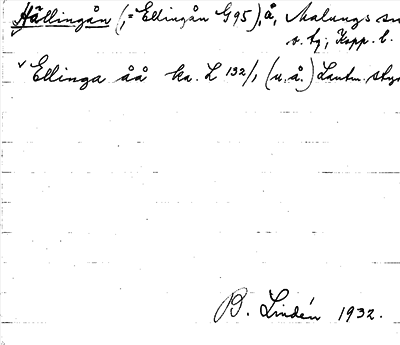 Hällingån (,= Ellingån G95), å, Malungs sn
o. tg; Kopp. l.
v Ellinga åå ka. L 132/1 (u. å.) Lantm. styr
B. Lindén 1932.